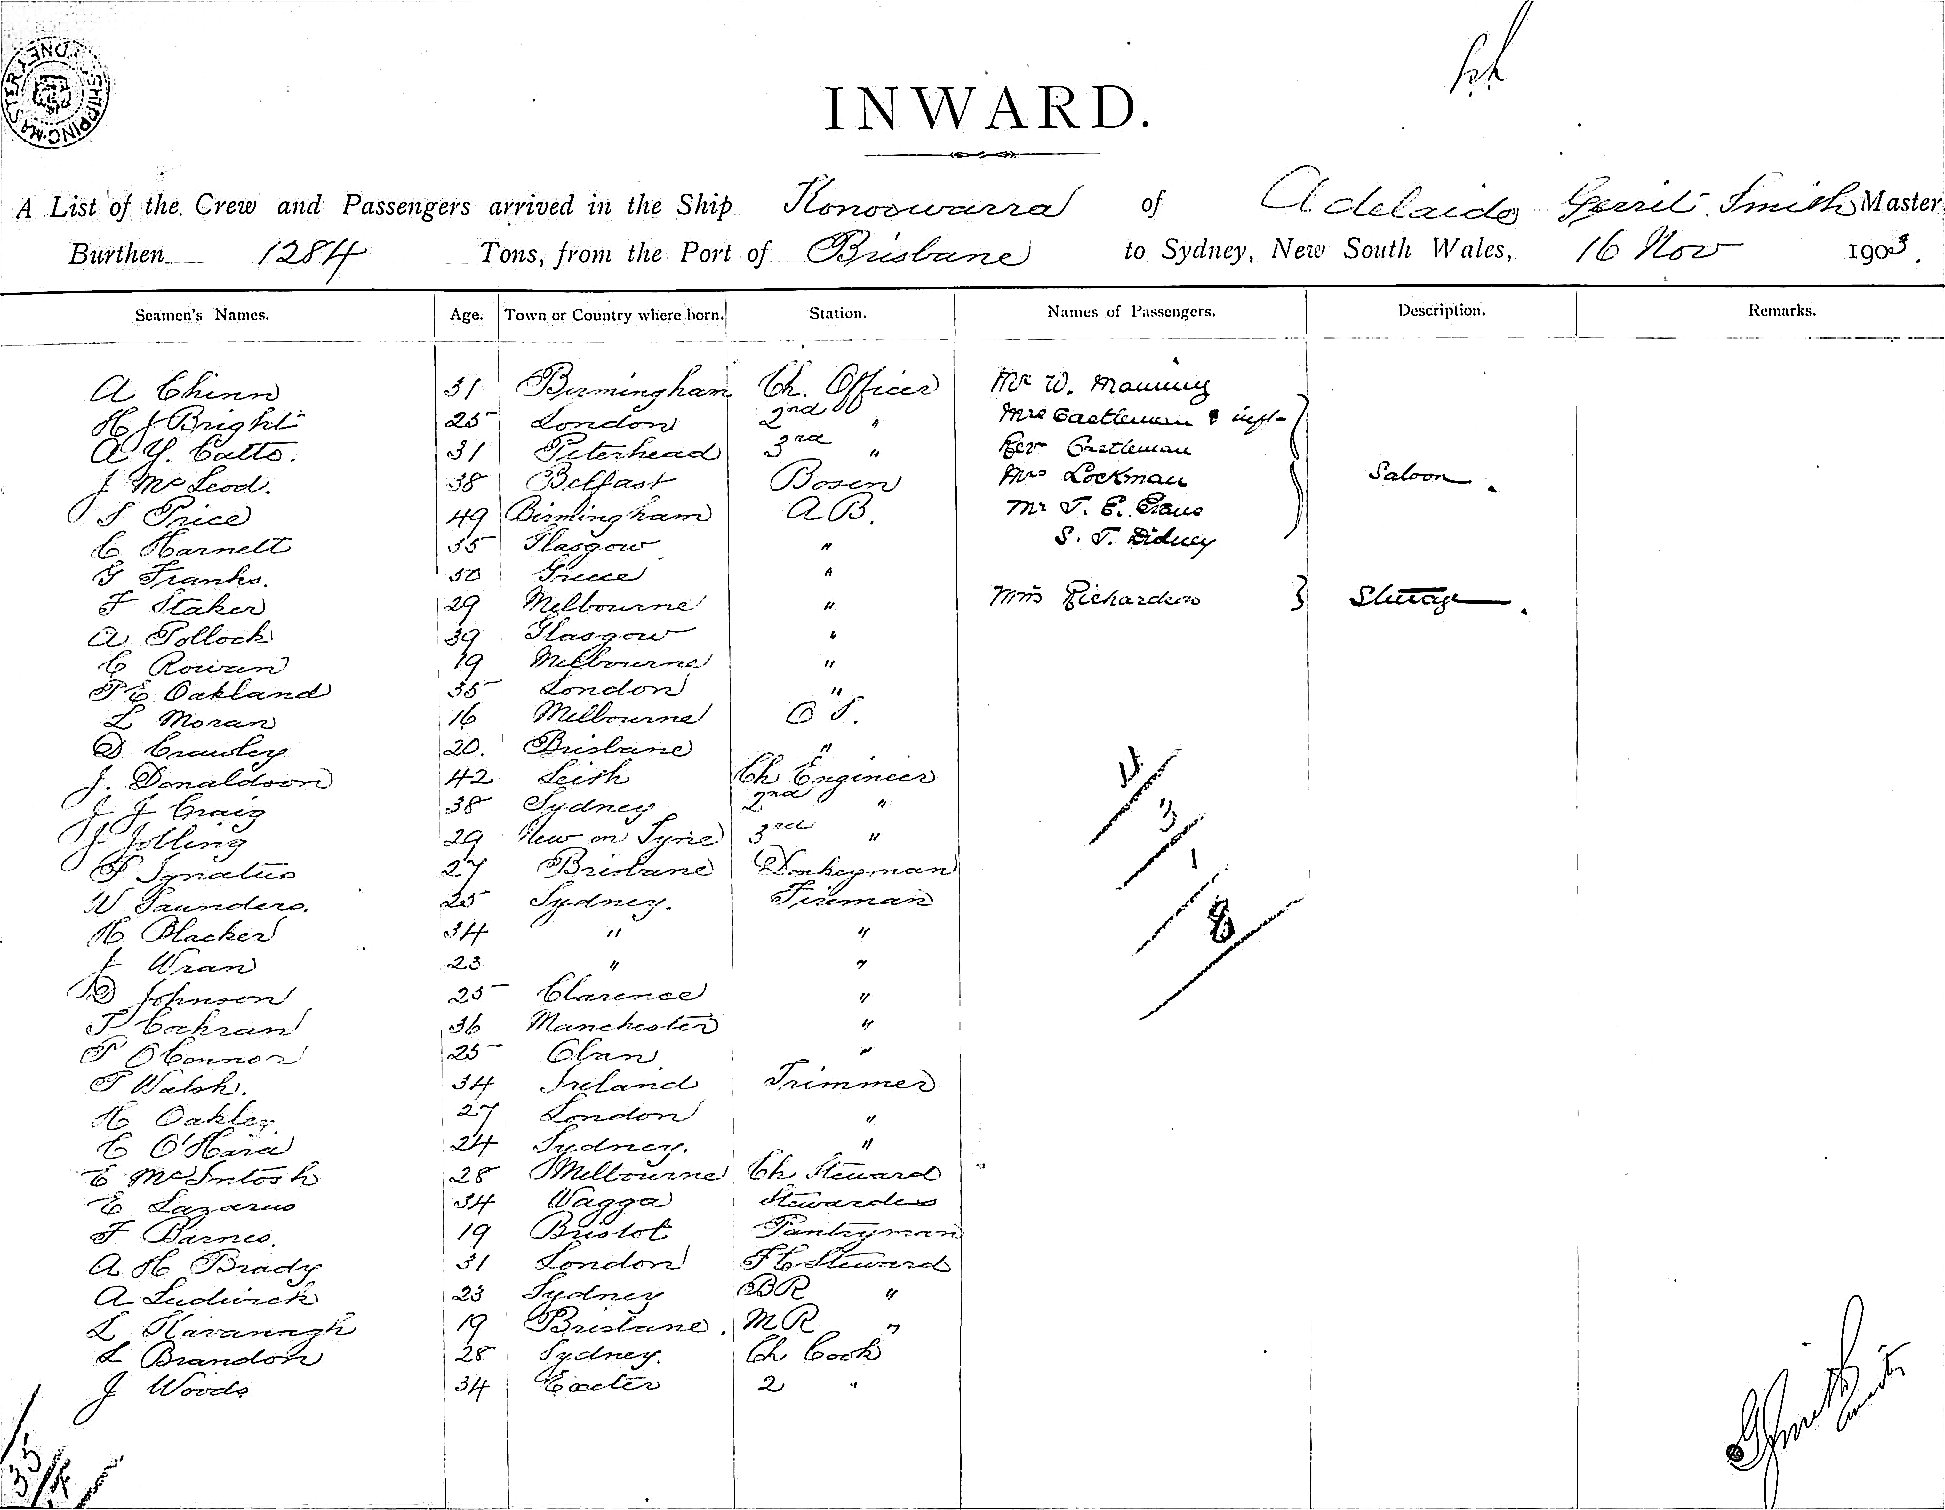 SHIPPING MASTER SYDNEY
INWARD.
A List of the Crew and Passengers arrived in the Ship Konoowarra of Adelaide Gerrit Smith Master
Burthen 1284 Tons, from the Port of Brisbane to Sydney, New South Wales, 16 Nov 1903.
Seamen's Names. Age. Town or Country where born. Station. Names of Passengers. Description. Remarks.
A Chinn 31 Birmingham Ch. Officer Mr W. Manning
H J Bright 25 London 2nd " Mrs Castleman & inft
A Y. Catto. 31 Peterhead 3rd " Rev Castleman
J McLeod. 38 Belfast Bosen Mrs Lockman Saloon.
S Price 49 Birmingham A B. Mr T. E. Evans
C Harnett 35 Glasgow " S. T. Didney
G Franks. 50 Greece "
F Staker 29 Melbourne " Miss Richardson Steerage.
A Pollock 39 Glasgow "
C Rowan 19 Melbourne "
P E Oakland 35 London "
L Moran 16 Melbourne O S.
D Crawley 20. Brisbane "
J. Donaldson 42 Leith Ch Engineer
J J Craig 38 Sydney 2nd "
J Jolling 29 New on Tyne 3rd "
P Ignatus 27 Brisbane Donkeyman
W Saunders. 25 Sydney. Fireman
H Blacker 34 " "
J Wran 23 " "
D Johnson 25 Clarence "
T Cochran 36 Manchester "
P O'Connor 25 Clan "
T Walsh. 34 Ireland Trimmer
H Oakley. 27 London "
C O'Hara 24 Sydney. "
E McIntosh 28 Melbourne Ch Steward
E Lazarus 34 Wagga Stewardess
F Barnes. 19 Bristol Pantryman
A H Brady 31 London F C Steward
A Ludwick 23 Sydney B R "
L Kavanagh 19 Brisbane. M R "
L Brandon 28 Sydney. Ch Cook
J Woods 34 Exeter 2 "
4
3
1
8
35
G Smith
Master